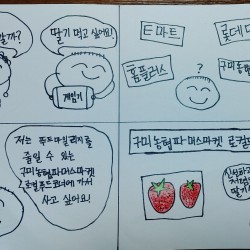 할까?
딸기 먹고 싶어요!
?
E마트
롯데마
홈플러스
구미농협
저는 푸드마일리지를
줄일 수 있는
구미농협파머스마켓
로컬푸드코너에 가서
사고 싶어요!
구미농협파머스마켓 로컬
신선하
딸기